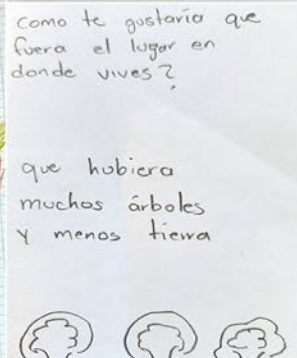 como te gustaría que
fuera el lugar en
donde vives?
que hubiera
muchos árboles
y menos tierra